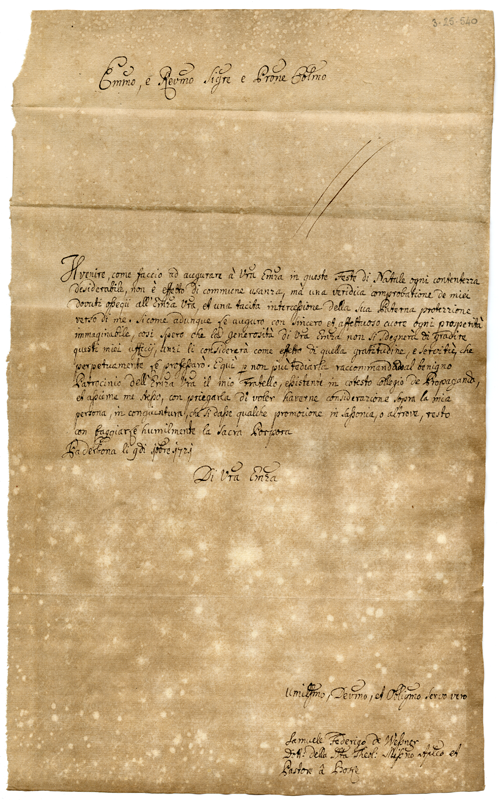 3-25-640
Emmo, e Revmo Sigre e Prone Colmo
Il venire, come faccio ad augurare à Vra Emza in queste Feste di Natale ogni contentezza
desiderabile, non è effetto di commune usanza, mà una veridica comprobatione de miei
devoti ossequi all'Emza Vra, et una tacita intercessione della Sua Paterna protezzione
verso di me. Sicome adunque Le auguro con sincero et affettuoso cuore ogni prosperità
immaginabile, così spero che la generosità di Vra Emza non si degnerà di gradire
questi miei officij, anzi li considererà come effetto di quella gratitudine, e che
perpetuamente le professarò. E quì non può tediarla raccomandando al benigno
Patrocinio dell'Emza Vra il mio Fratello, existente in cotesto collegio de Propaganda,
et apieme me stesso, con priegarla di voler haverne consideratione sopra la mia
persona, in congiuntura, che si dasse qualche promozione in Sassonia, o altrove, resto
con baggiarLe humilmente la Sacra Porpora
Paderbona li 9di Xbre 1721
Di Vra Emza
Umilissmo, Devmo, et Obligmo servo vero
Samuele Federigo de Weßner
Dott. della Sta Theol. Missno Aplico et
Pastore à